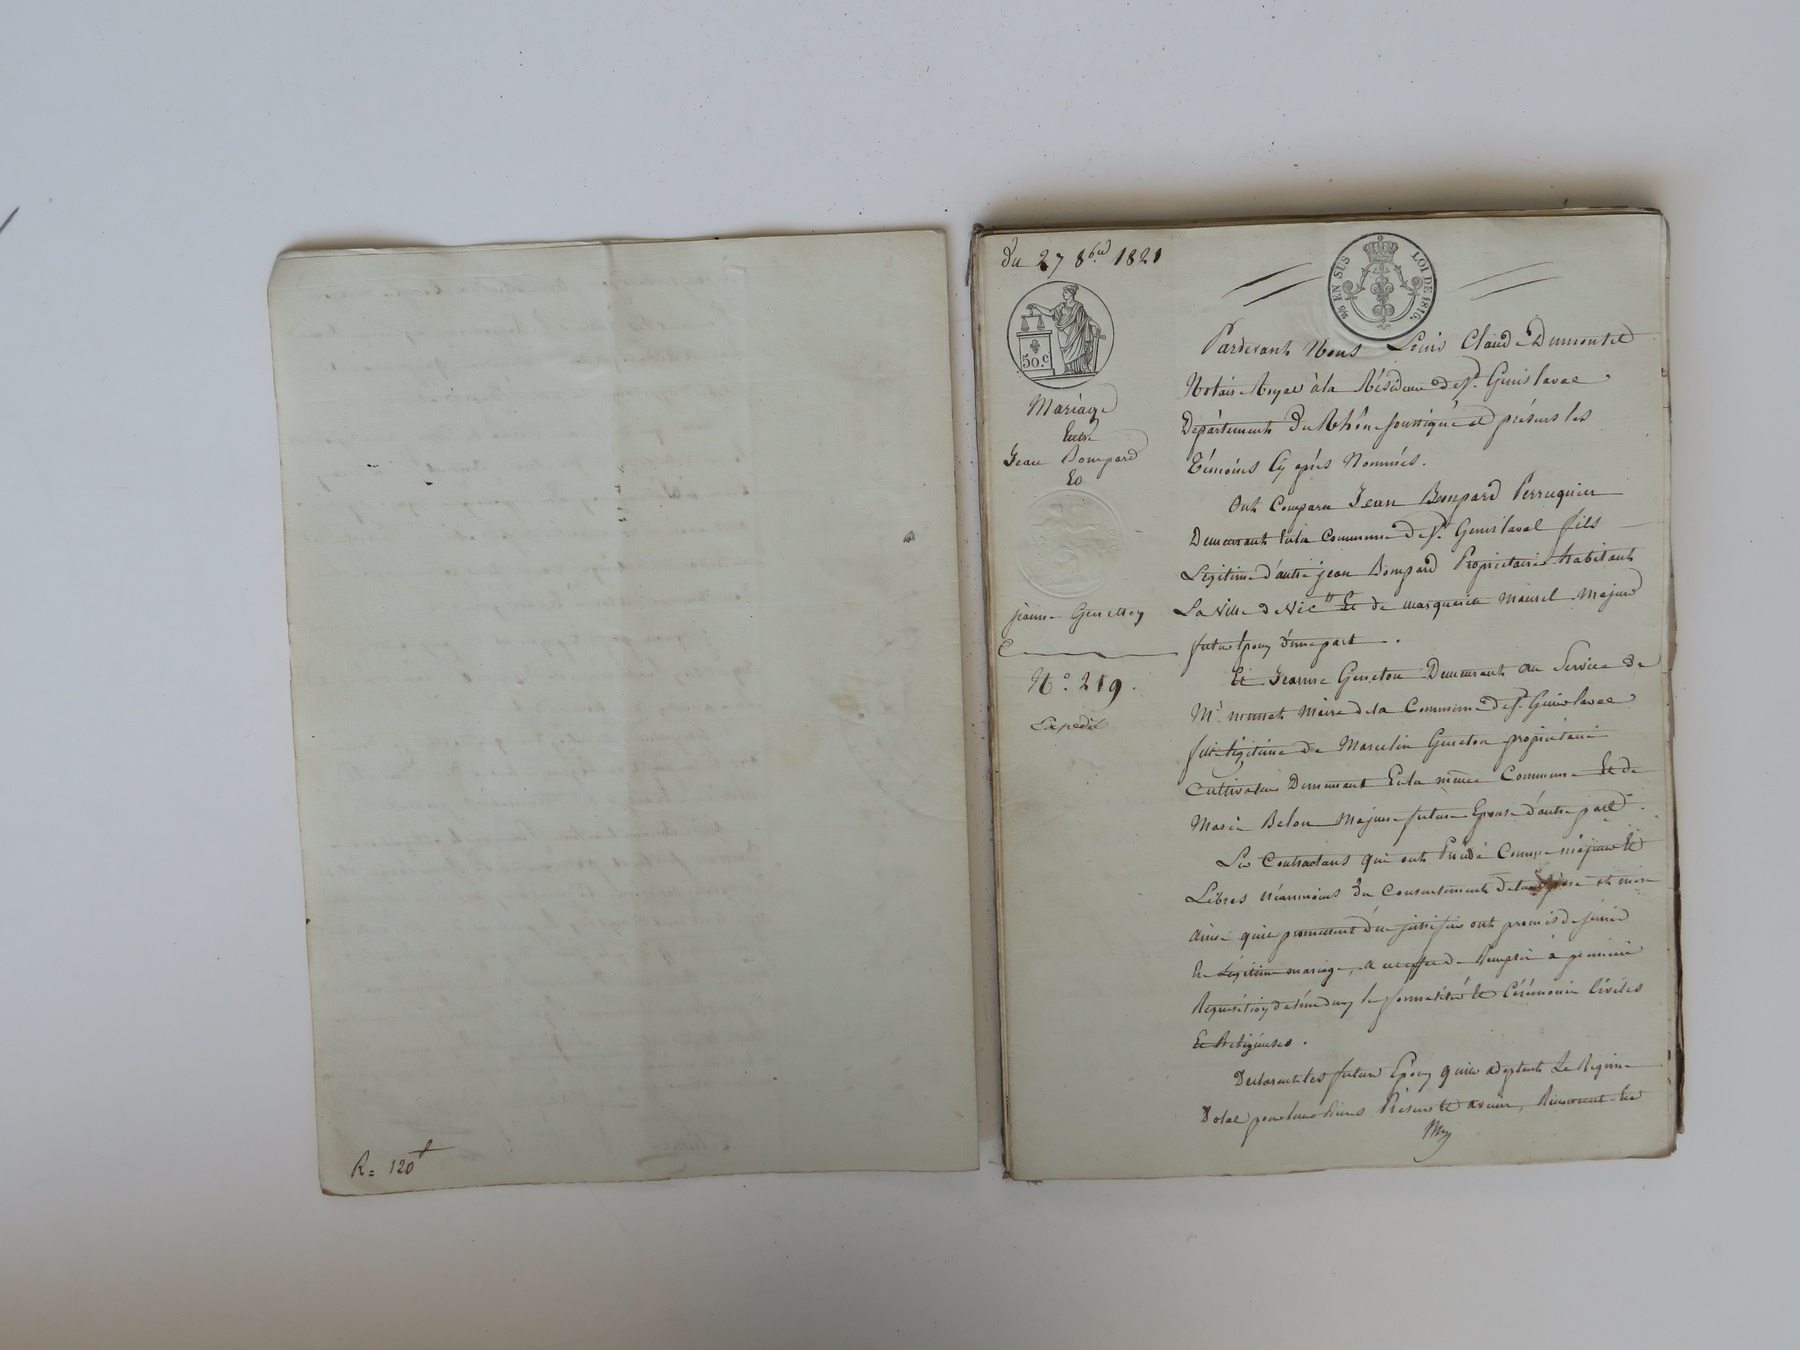 R= 120
du 27 8bre 1821
50.c
Mariage
Entre
Jean Bompard
Et
jeanne Genetton
N.o 219.
Expédié
EN SUS
LOI DE 1816.
Pardevant Nous Louis Claude Dumontet
Notaire Royal à la Résidence de St. Genislaval
Département du Rhône soussigné et présens les
Témoins Cy après Nommés.
Ont Comparu Jean Bompard Perruquier
Demeurant En la Commune de St. Genislaval fils
Légitime d'autre jean Bompard Propriétaire habitant
La Ville de Et de marguerite Maurel Majeur
futur Epoux d'une part.
Et Jeanne Geneton Demeurant au Service de
Mr. Maire de la Commune de St. Genislaval
fille légitime de Marcelin Geneton propriétaire
Cultivateur Demeurant En la même Commune Et de
Marie Belou Majeure future Epouse d'autre part.
Les Contractans qui ont Procédé Comme majeurs Et
Libres néanmoins du Consentement de leurs père et mère
Ainsi qu'ils promettent d'en justifier ont promis de s'unir
En Légitime mariage, a cet effet de Remplir à première
Réquisition de l'un d'eux les formalités Et Cérémonies Civiles
Et Religieuses.
Déclarent les futurs Epoux qu'ils adoptent Le Régime
Dotal pour leurs Biens Présens Et avenir,